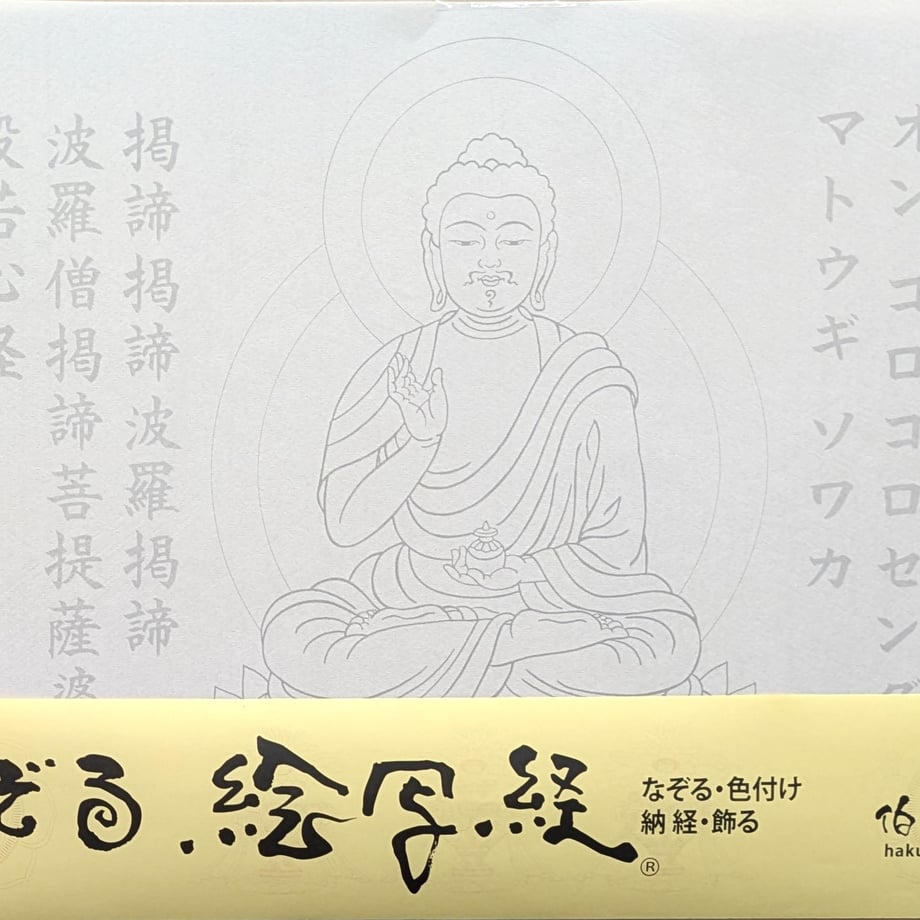 オン コロコロ セン
マトウギ ソワカ
掲諦掲諦波羅掲諦
波羅僧掲諦菩提薩波
般若心経
ぞる絵写経
®
なぞる・色付け
納経・飾る
伯
haku